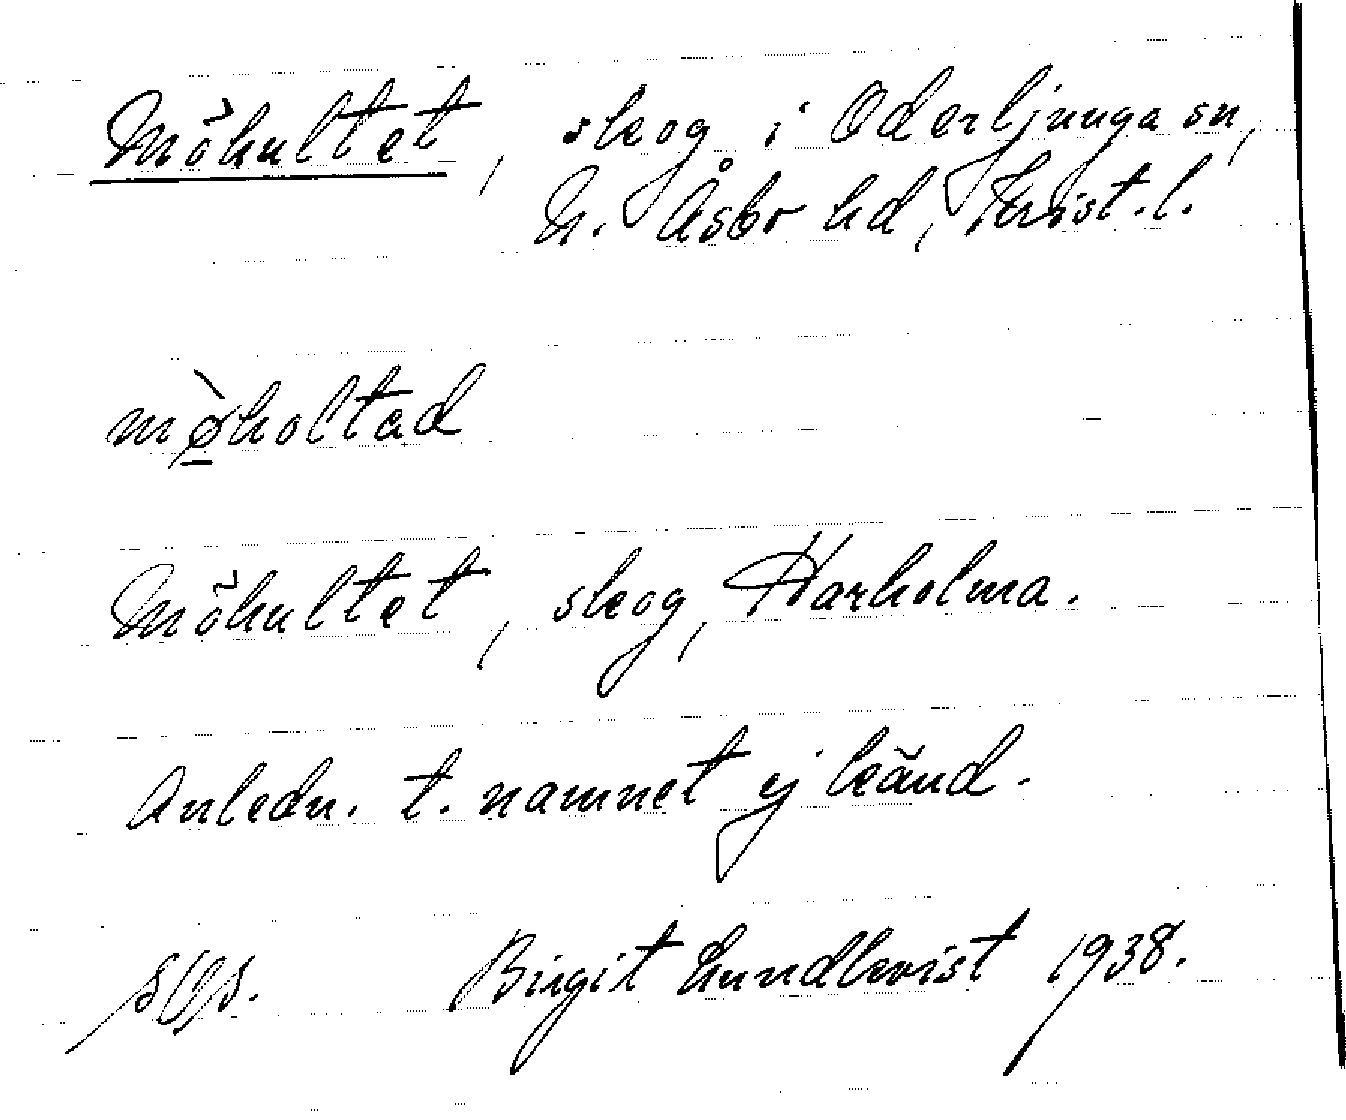 Möhultet, skog i Oderljunga sn,
N. Åsbo hd, Krist. l.
mø̱̀holtad
Möhultet, skog, Harholma.
Anledn. t. namnet ej känd.
Birgit Lundkvist 1938.